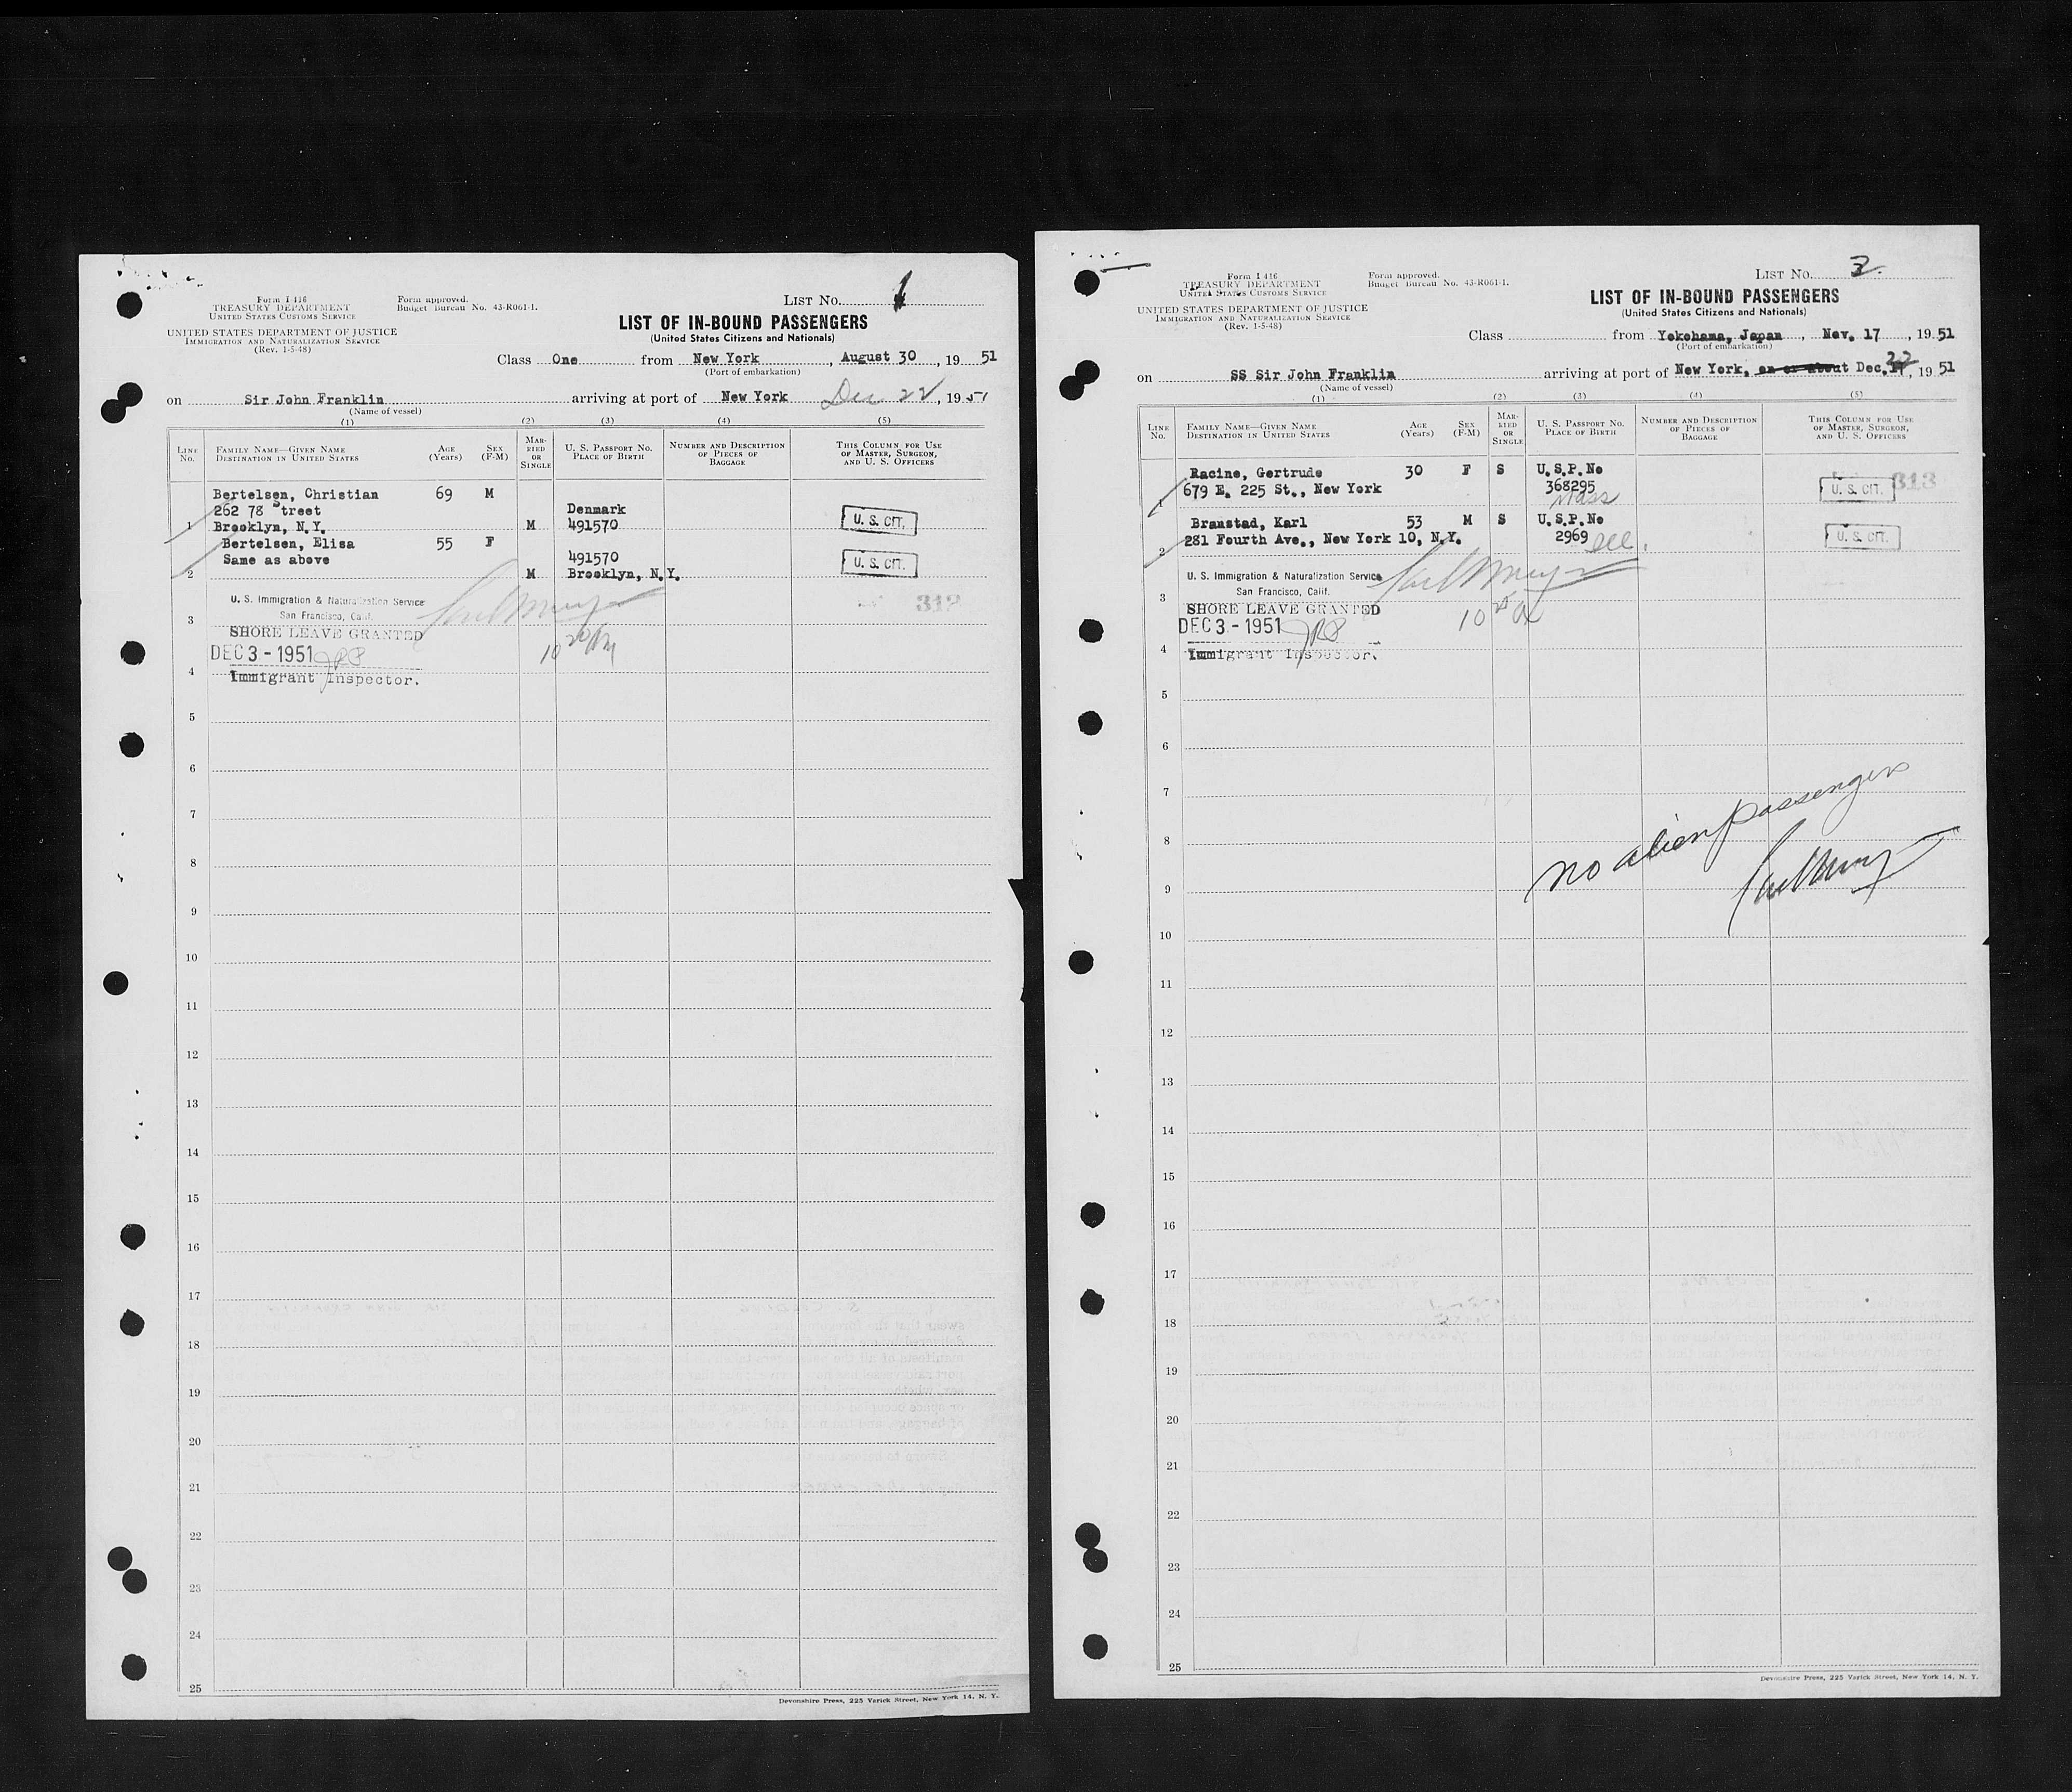 Form I 416
TREASURY DEPARTMENT
UNITED STATES CUSTOMS SERVICE
UNITED STATES DEPARTMENT OF JUSTICE
IMMIGRATION AND NATURALIZATION SERVICE
(Rev. 1-5-48)
Form approved.
Budget Bureau No. 43-R061-1.
LIST NO. 1
LIST OF IN-BOUND PASSENGERS
(United States Citizens and Nationals)
Class One from New York, August 30, 19 51
(Port of embarkation)
on Sir John Franklin arriving at port of New York Dec 22, 1951
(Name of vessel)
(1) (2) (3) (4) (5)
LINE NO. FAMILY NAME—GIVEN NAME DESTINATION IN UNITED STATES AGE (Years) SEX (F-M) MARRIED OR SINGLE U. S. PASSPORT NO. PLACE OF BIRTH NUMBER AND DESCRIPTION OF PIECES OF BAGGAGE THIS COLUMN FOR USE OF MASTER, SURGEON, AND U. S. OFFICERS
Bertelsen, Christian 69 M
262 78 Street Denmark
1 Brooklyn, N.Y. M 491570 U. S. CIT.
Bertelsen, Elisa 55 F
Same as above 491570 U. S. CIT.
2 M Brooklyn, N.Y.
U. S. Immigration & Naturalization Service 312
San Francisco, Calif.
3
SHORE LEAVE GRANTED
DEC 3 - 1951 JRP 10
4
Immigrant Inspector.
5
6
7
8
9
10
11
12
13
14
15
16
17
18
19
20
21
22
23
24
25
Devonshire Press, 225 Varick Street, New York 14, N. Y.
Form I 416
TREASURY DEPARTMENT
UNITED STATES CUSTOMS SERVICE
UNITED STATES DEPARTMENT OF JUSTICE
IMMIGRATION AND NATURALIZATION SERVICE
(Rev. 1-5-48)
Form approved.
Budget Bureau No. 43-R061-1.
LIST NO. 2.
LIST OF IN-BOUND PASSENGERS
(United States Citizens and Nationals)
Class from Yokohama, Japan, Nov. 17, 19 51
(Port of embarkation)
on SS Sir John Franklin arriving at port of New York, on or about Dec. 22, 19 51
(Name of vessel)
(1) (2) (3) (4) (5)
LINE NO. FAMILY NAME—GIVEN NAME DESTINATION IN UNITED STATES AGE (Years) SEX (F-M) MARRIED OR SINGLE U. S. PASSPORT NO. PLACE OF BIRTH NUMBER AND DESCRIPTION OF PIECES OF BAGGAGE THIS COLUMN FOR USE OF MASTER, SURGEON, AND U. S. OFFICERS
Racine, Gertrude 30 F S U.S.P.No
679 E. 225 St., New York 368295 U. S. CIT. 313
1 Mass
Branstad, Karl 53 M S U.S.P.No
281 Fourth Ave., New York 10, N.Y. 2969 U. S. CIT.
2
U. S. Immigration & Naturalization Service
San Francisco, Calif.
3
SHORE LEAVE GRANTED
DEC 3 - 1951 JRP 10
4
Immigrant Inspector.
5
6
7
no alien passengers
8
9
10
11
12
13
14
15
16
17
18
19
20
21
22
23
24
25
Devonshire Press, 225 Varick Street, New York 14, N. Y.